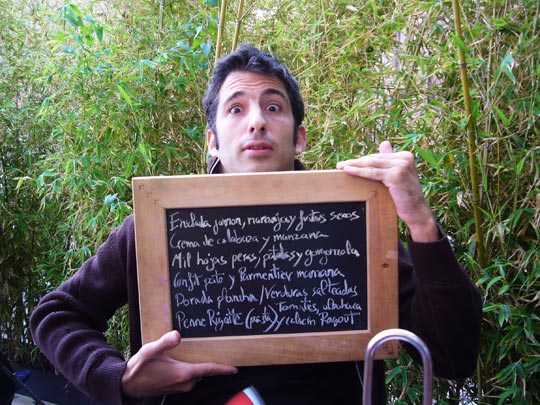 Ensalada jamon, naranja y frutos secos
Crema de calabaza y manzana
Mil hojas peras, patatas y gorgonzola
Confit pato y Parmentier manzana
Dorada plancha/Verduras salteadas
Penne Rigatte (pasta) / Tomates,
y calacin Ragout